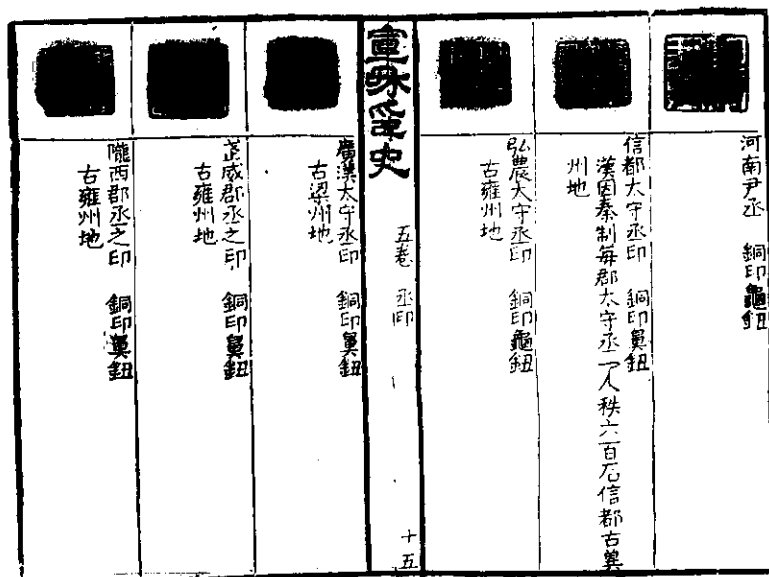 河南尹丞 銅印龜鈕
信都太守丞印 銅印鼻鈕
漢因秦制每郡太守丞一人秩六百石信都古冀
州地
弘農太守丞印 銅印龜鈕
古雍州地
印史
五卷 丞印
十五
廣漢太守丞印 銅印鼻鈕
古梁州地
武威郡丞之印 銅印鼻鈕
古雍州地
隴西郡丞之印 銅印鼻鈕
古雍州地